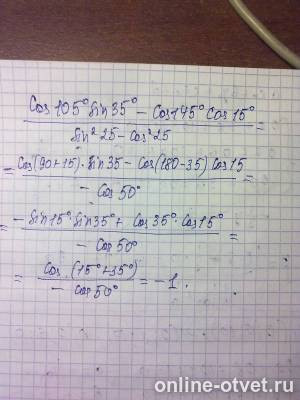 cos105° sin35° − cos145° cos15°
sin²25 − cos²25 =
= cos(90+15)·sin35 − cos(180−35) cos15
− cos50° =
= −sin15° sin35° + cos35°·cos15°
− cos50° =
= cos(15°+35°)
− cos50° = −1.
online-otvet.ru